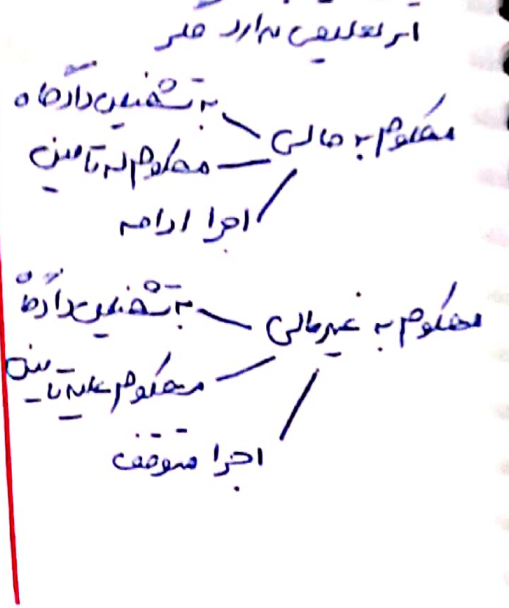 اثر تعلیقی ندارد مگر
محکوم به مالی
به تشخیص دادگاه
محکوم له تامین
اجرا ادامه
محکوم به غیرمالی
به تشخیص دادگاه
محکوم علیه تامین
اجرا متوقف